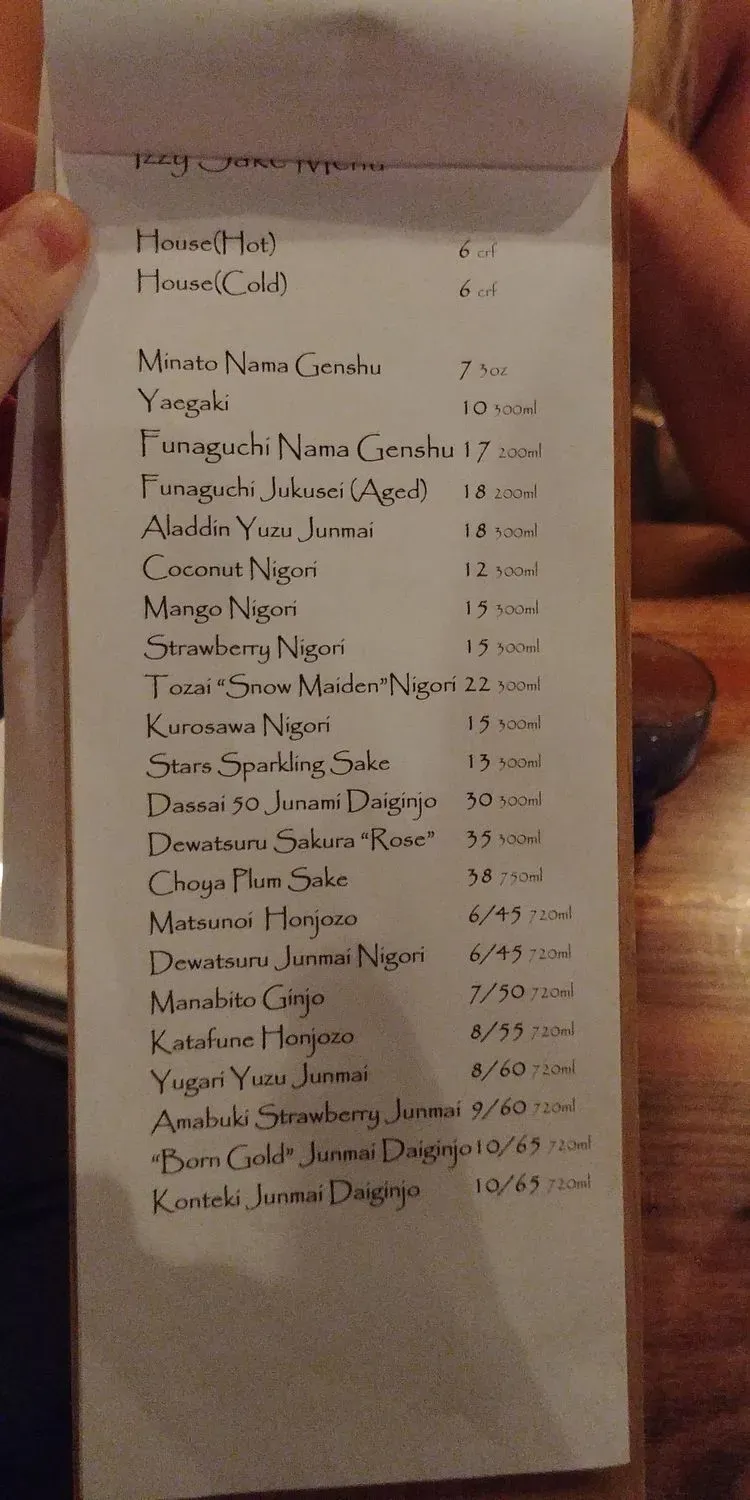 Izzy Sake Menu
House(Hot) 6 crf
House(Cold) 6 crf
Minato Nama Genshu 7 3oz
Yaegaki 10 300ml
Funaguchi Nama Genshu 17 200ml
Funaguchi Jukusei (Aged) 18 200ml
Aladdin Yuzu Junmai 18 300ml
Coconut Nigori 12 300ml
Mango Nigori 15 300ml
Strawberry Nigori 15 300ml
Tozai “Snow Maiden”Nigori 22 300ml
Kurosawa Nigori 15 300ml
Stars Sparkling Sake 13 300ml
Dassai 50 Junami Daiginjo 30 300ml
Dewatsuru Sakura “Rose” 35 300ml
Choya Plum Sake 38 750ml
Matsunoi Honjozo 6/45 720ml
Dewatsuru Junmai Nigori 6/45 720ml
Manabito Ginjo 7/50 720ml
Katafune Honjozo 8/55 720ml
Yugari Yuzu Junmai 8/60 720ml
Amabuki Strawberry Junmai 9/60 720ml
“Born Gold” Junmai Daiginjo 10/65 720ml
Konteki Junmai Daiginjo 10/65 720ml